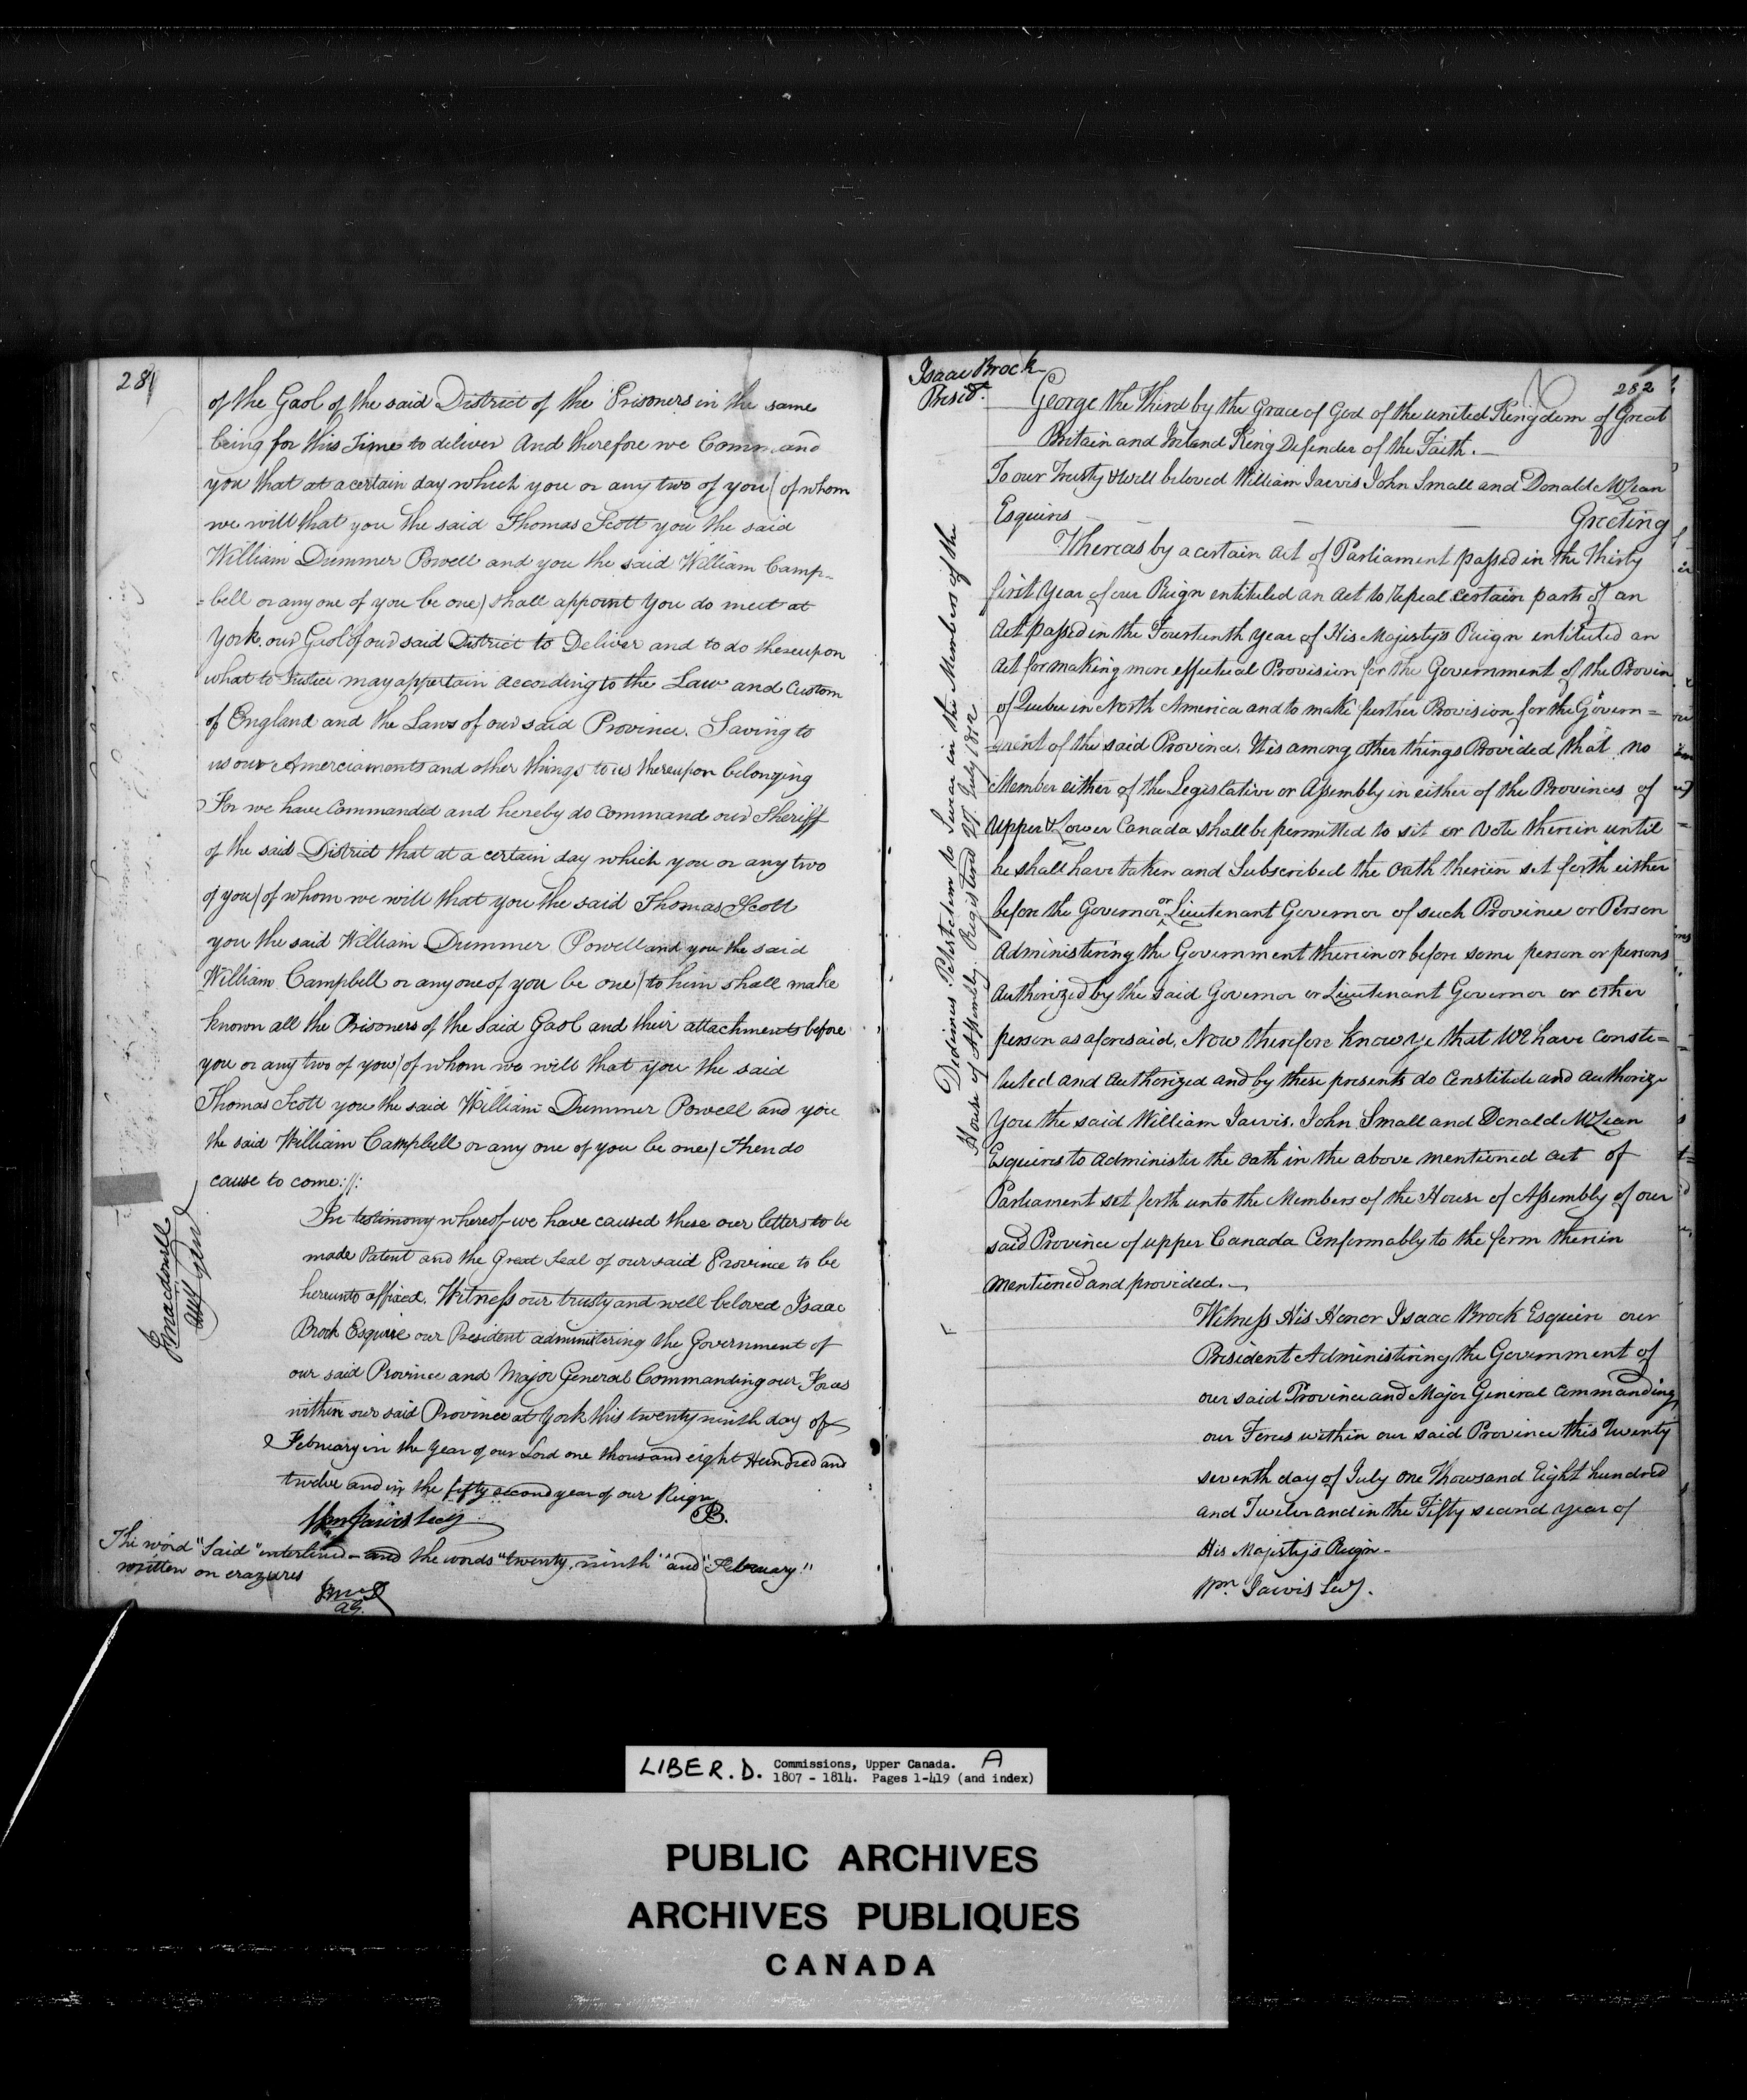 281
of the Gaol of the said District of the Prisoners in the same
being for this Time to deliver And therefore we Command
you that at a certain day which you or any two of you (of whom
we will that you the said Thomas Scott you the said
William Dummer Powell and you the said William Camp-
=bell or any one of you be one) shall appoint you do meet at
York. our Gaol of our said District to Deliver and to do thereupon
what to Justice may appertain according to the Law and Custom
of England and the Laws of our said Province. Saving to
us our Amerciaments and other things to us thereupon belonging
For we have Commanded and hereby do Command our Sheriff
of the said District that at a certain day which you or any two
of you (of whom we will that you the said Thomas Scott
you the said William Dummer Powell and you the said
William Campbell or any one of you be one) to him shall make
known all the Prisoners of the said Gaol and their attachments before
you or any two of you (of whom we will that you the said
Thomas Scott you the said William Dummer Powell and you
the said William Campbell or any one of you be one) then do
cause to come://:
In testimony whereof we have caused these our letters to be
made Patent and the Great Seal of our said Province to be
hereunto affixed. Witness our trusty and well beloved Isaac
Brock Esquire our President administering the Government of
our said Province and Major General Commanding our Forces
within our said Province at York this twenty ninth day of
February in the Year of our Lord one thousand eight Hundred and
twelve and in the fifty second year of our Reign
Wm Jarvis Secy
B.
The word "Said" interlined and the words "twenty ninth" and "February"
written on erazures
AG.
Jmacdonell
Atty Genl
Isaac Brock
Presidt.
282
George the Third by the Grace of God of the united Kingdom of Great
Britain and Ireland King Defender of the Faith.
To our Trusty & Well beloved William Jarvis John Small and Donald McLean
Esquires Greeting
Whereas by a certain Act of Parliament passed in the Thirty
first Year of our Reign entituled an Act to repeal certain parts of an
Act passed in the Fourteenth Year of His Majesty's Reign entituled an
Act for making more effectual Provision for the Government of the Provin
of Quebec in North America and to make further Provision for the Govern=
=ment of the said Province. It is among other things Provided that no
Member either of the Legislative or Assembly in either of the Provinces of
Upper & Lower Canada shall be permitted to sit or Vote therein until
he shall have taken and Subscribed the Oath therein set forth either
before the Governor or Lieutenant Governor of such Province or Person
Administering the Government therein or before some person or persons
Authorized by the said Governor or Lieutenant Governor or other
person as aforesaid. Now therefore Know ye that We have Consti=
tuted and Authorized and by these presents do Constitute and Authorize
You the said William Jarvis. John Small and Donald McLean
Esquires to Administer the Oath in the above mentioned Act of
Parliament set forth unto the Members of the House of Assembly of our
said Province of upper Canada Conformably to the form therein
mentioned and provided.
Witness His Honor Isaac Brock Esquire our
President Administering the Government of
our said Province and Major General Commanding
our Forces within our said Province this Twenty
seventh day of July One Thousand Eight hundred
and Twelve and in the Fifty second Year of
His Majesty's Reign-
Wm. Jarvis Secy.
Dedimus Potestatem to Swear in the Members of the
House of Assembly. Registered 27 July 1812
LIBER. D. Commissions, Upper Canada. A
1807 - 1814. Pages 1-419 (and index)
PUBLIC ARCHIVES
ARCHIVES PUBLIQUES
CANADA